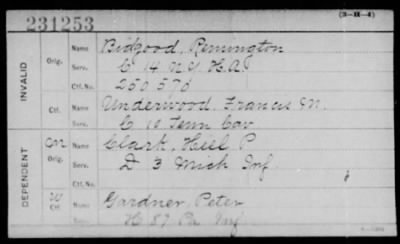 (3-IX-4)
231253
INVALID
Orig.
Name Bidgood, Remington
Serv. C 14 N.Y. H.A.
Ctf. No. 250 570
Ctf.
Name Underwood, Francis M.
Serv. C 10 Tenn Cav
DEPENDENT
Orig.
Name Clark, Heel P
Serv. D 3 Mich Inf
Ctf. No.
W
Ctf.
Name Gardner, Peter
Serv. H 87 Pa Inf